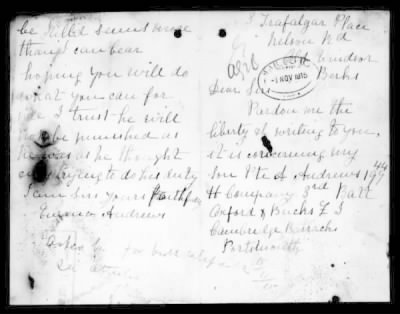 3 Trafalgar Place
Nelson Rd
Old Windsor
Berks
NOV 1915
Dear Sirs
Pardon me the
liberty of writing to you,
it is concerning my
Son Pte A Andrews 19
H Company 3rd Batt
Oxford & Bucks L I
Cambridge Barracks
Portsmouth
be killed seems worse
than I can bear
hoping you will do
what you can for
me I trust he will
not be punished as
he was as he thought
only trying to do his duty
I am Sirs yours faithfully
Andrews